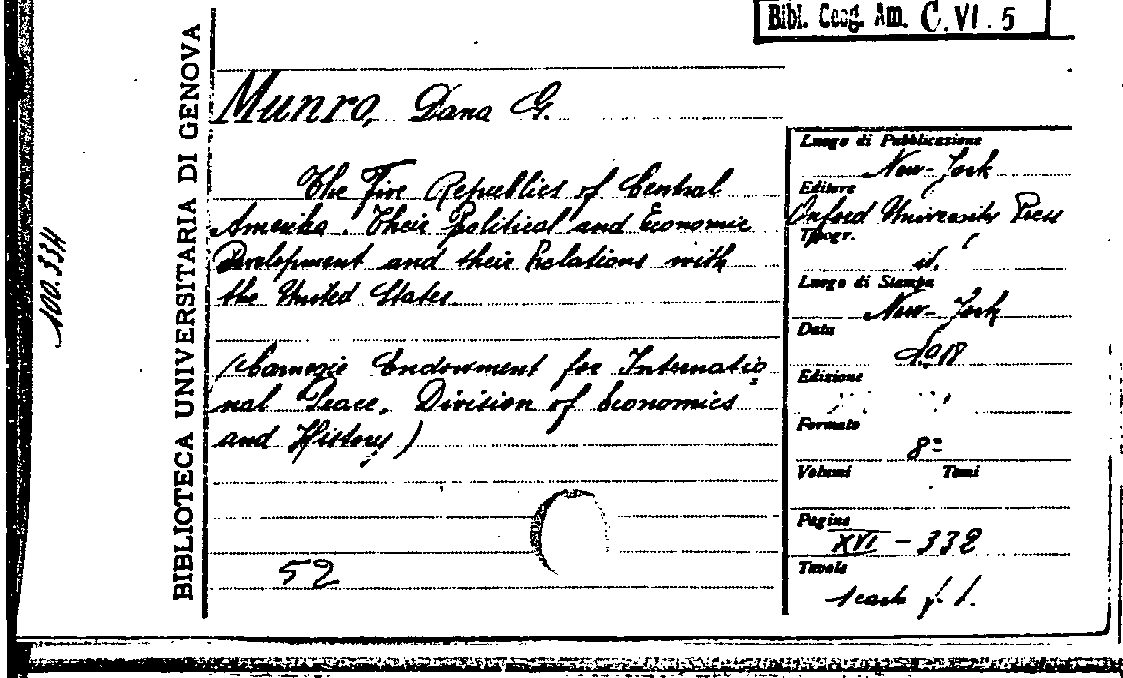 Bibl. Geog. Am. C. VI. 5
BIBLIOTECA UNIVERSITARIA DI GENOVA
100.334
Munro, Dana G.
The Five Republics of Central
Amerika. Their Political and Economic
Development and their Relations with
the United States.
(Carnegie Endowment for Internatio
nal Peace, Division of Economics
and History)
52
Luogo di Pubblicazione
New-York
Editore
Oxford University Press
Tipogr.
id.
Luogo di Stampa
New-York
Data
1918
Edizione
Formato
8º
Volumi Tomi
Pagine
XVI - 332
Tavole
1 cart. f. t.